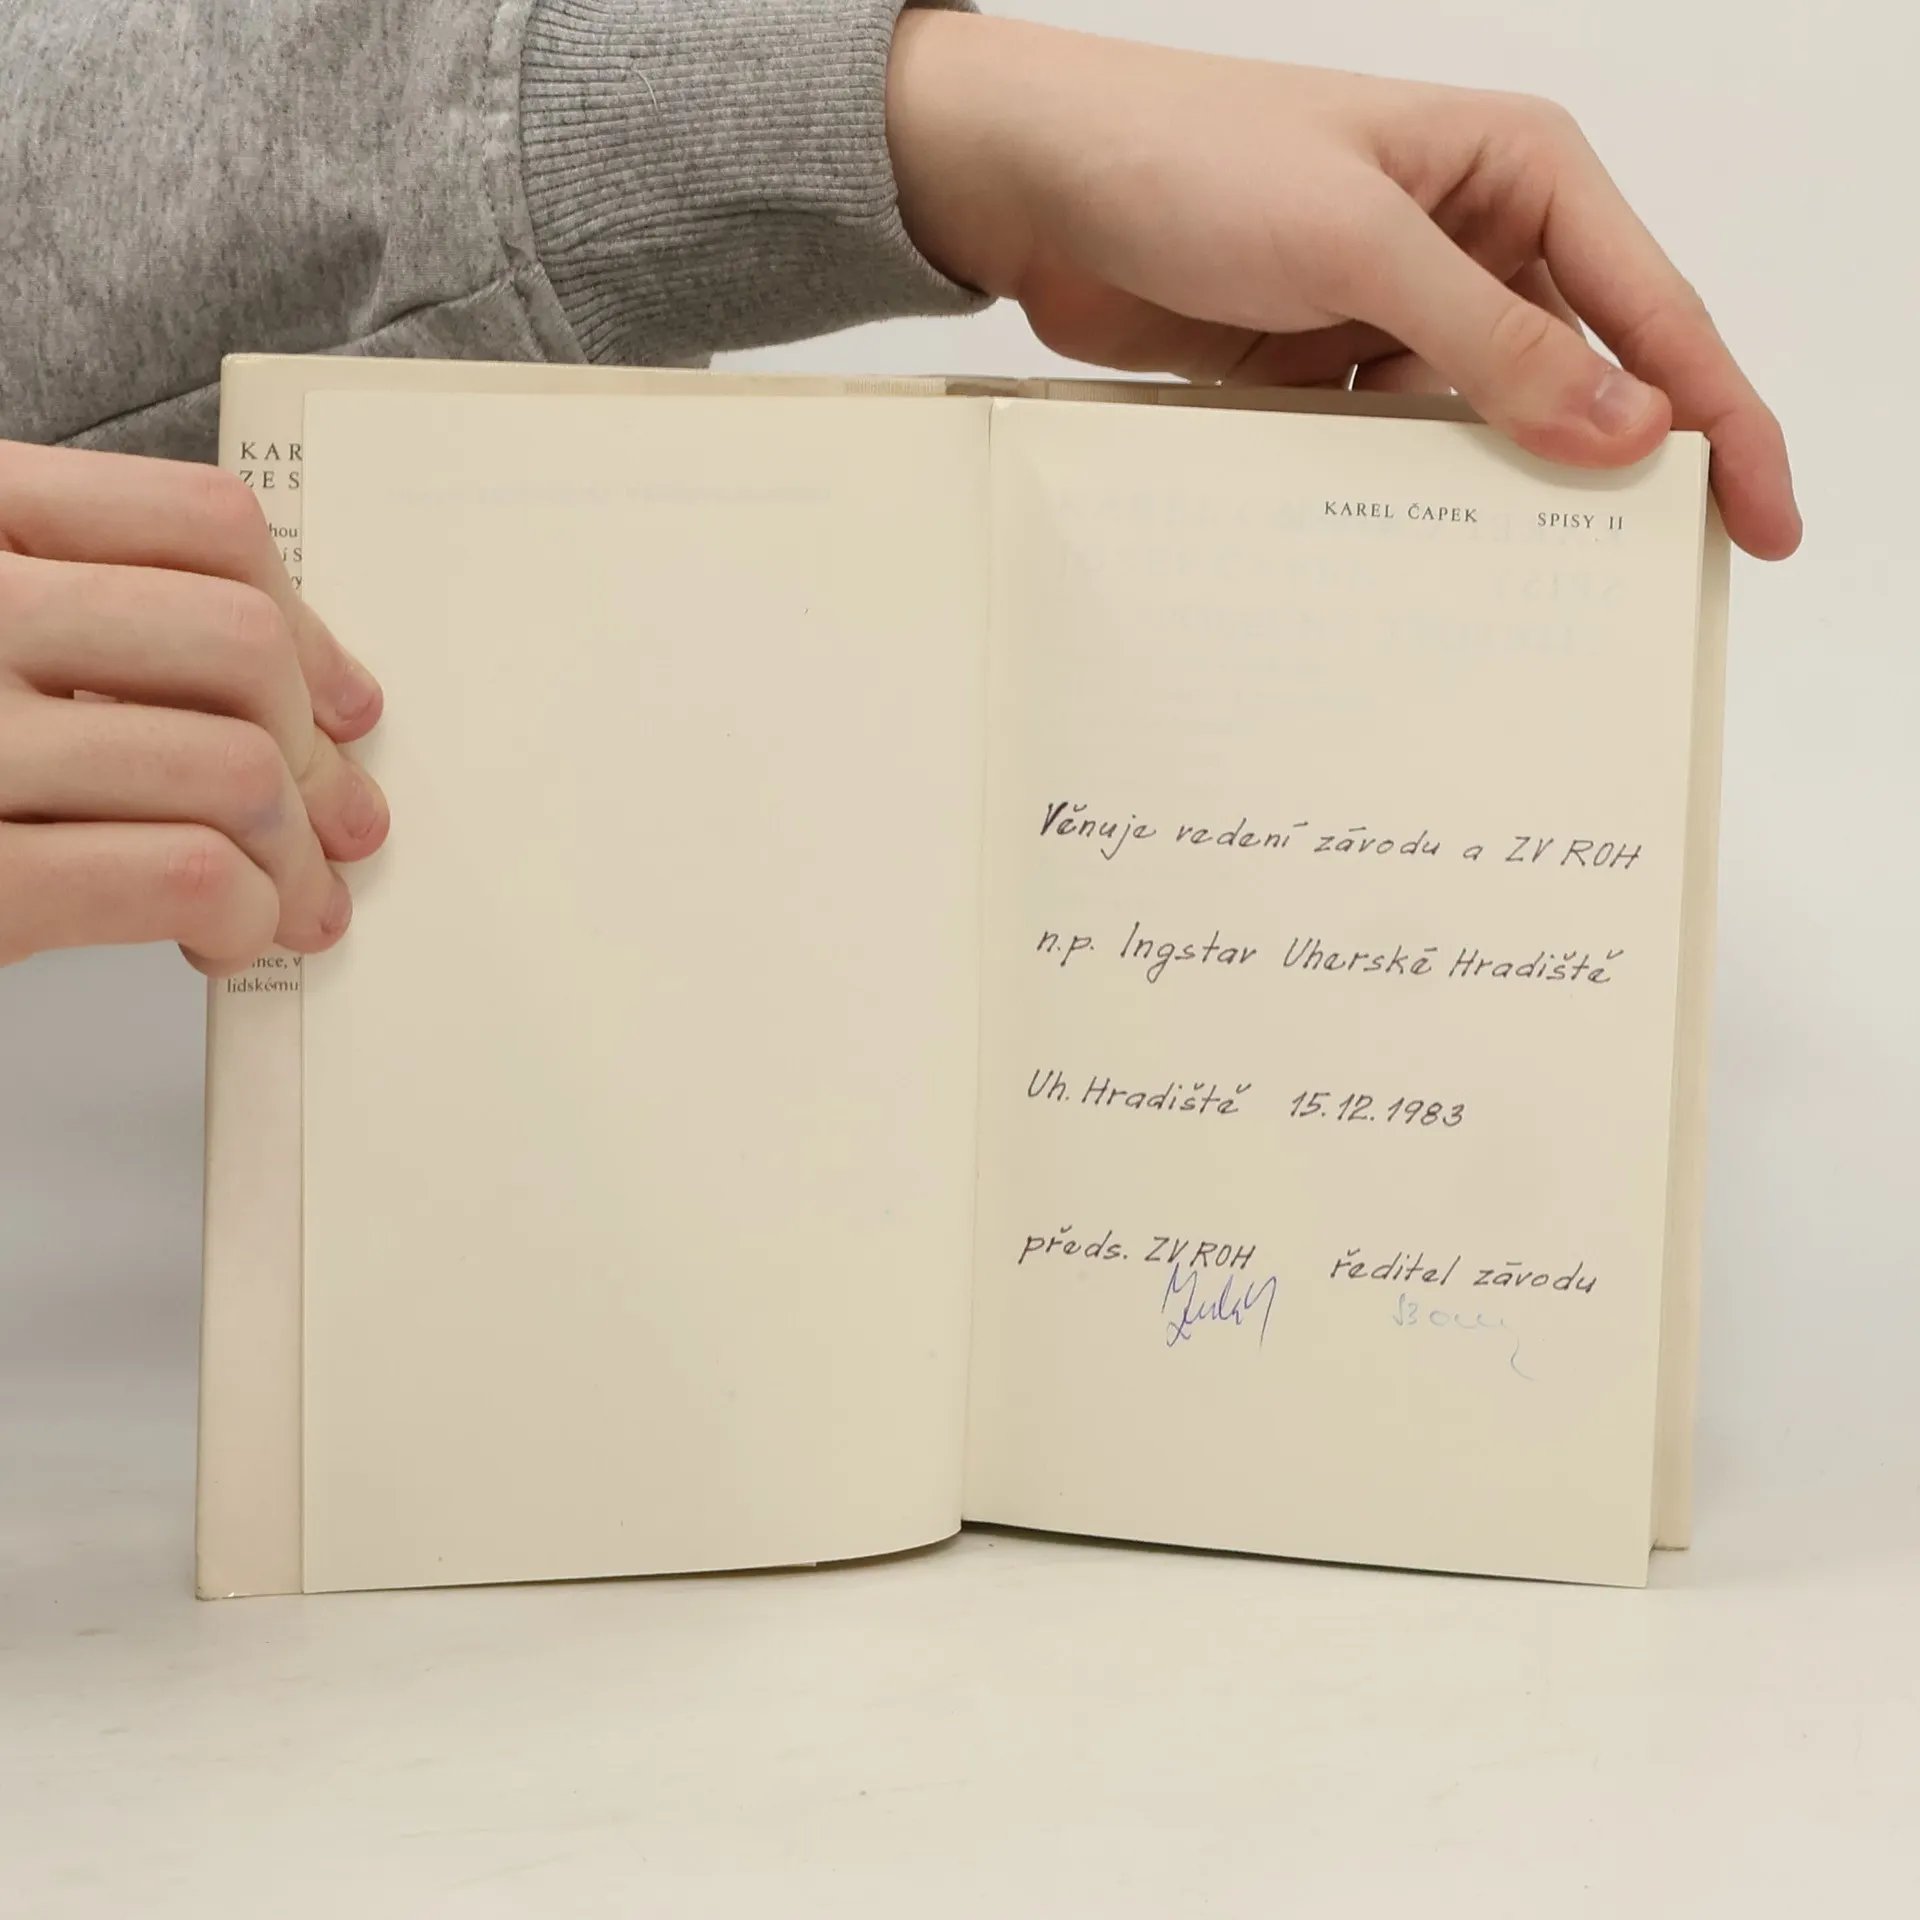 KAR
ZE S
hou
í S
vy
nce, v
lidskému
KAREL ČAPEK SPISY II
Věnuje vedení závodu a ZV ROH
n.p. Ingstav Uherské Hradiště
Uh. Hradiště 15.12.1983
předs. ZV ROH ředitel závodu